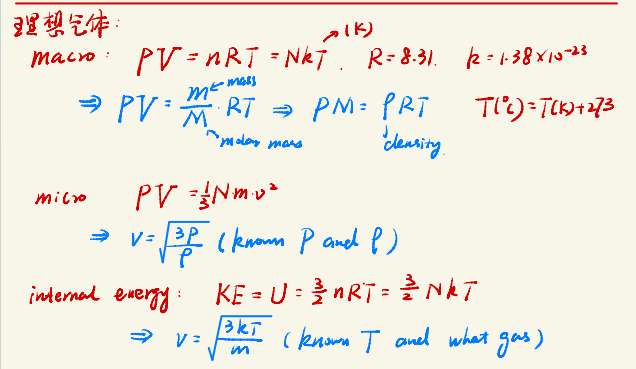 理想气体:
macro: PV = nRT = NkT. (K) R = 8.31. k = 1.38×10⁻²³
⇒ PV = m/M · RT ⇒ PM = ρRT T(°C) = T(K) + 273
mass
molar mass density
micro PV = 1/3 N·m·v²
⇒ v = √(3P/ρ) (known P and ρ)
internal energy: KE = U = 3/2 nRT = 3/2 NkT
⇒ v = √(3kT/m) (known T and what gas)